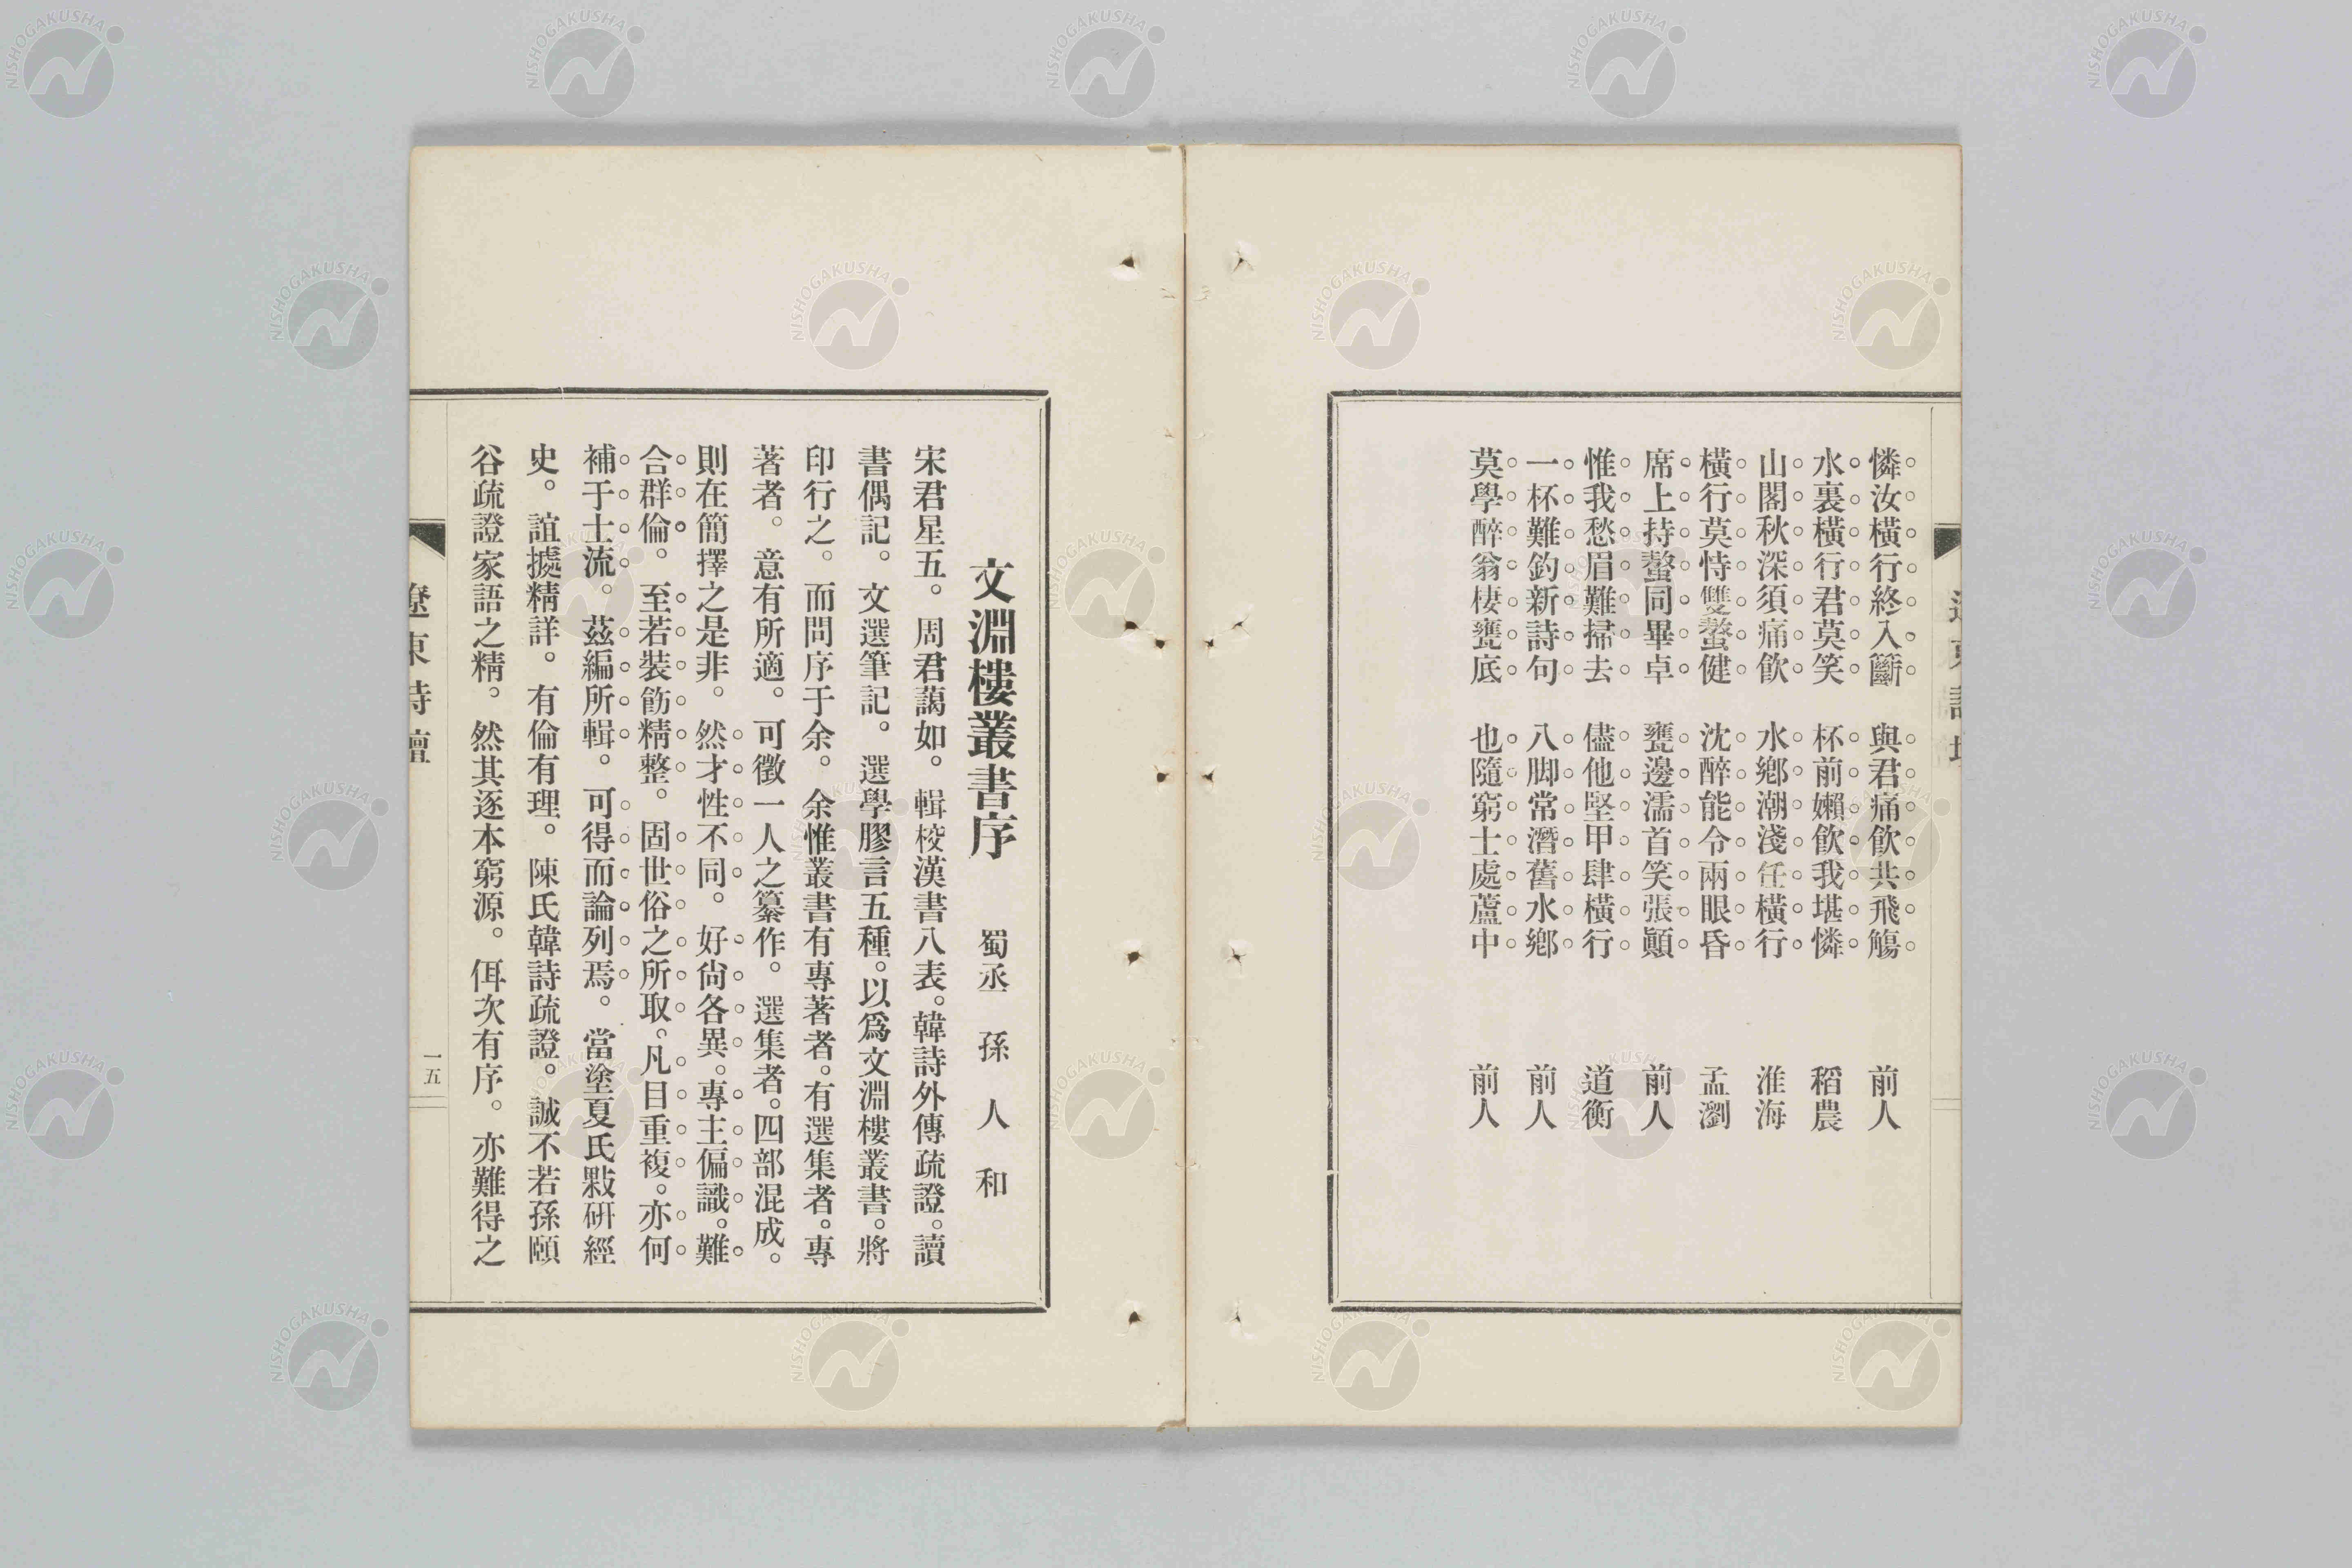 憐汝橫行終入籪 與君痛飮共飛觴 前人
水裏橫行君莫笑 杯前嬾飮我堪憐 稻農
山閣秋深須痛飮 水鄕潮淺任橫行 淮海
橫行莫恃雙螯健 沈醉能令兩眼昏 孟瀏
席上持螯同畢卓 甕邊濡首笑張顚 前人
惟我愁眉難掃去 儘他堅甲肆橫行 道衡
一杯難釣新詩句 八脚常潛舊水鄕 前人
莫學醉翁棲甕底 也隨窮士處蘆中 前人
文淵樓叢書序 蜀丞 孫人和
宋君星五。周君藹如。輯校漢書八表。韓詩外傳疏證。讀
書偶記。文選筆記。選學膠言五種。以爲文淵樓叢書。將
印行之。而問序于余。余惟叢書有專著者。有選集者。專
著者。意有所適。可徵一人之纂作。選集者。四部混成。
則在簡擇之是非。然才性不同。好尙各異。專主偏識。難
合群倫。至若裝飭精整。固世俗之所取。凡目重複。亦何
補于士流。茲編所輯。可得而論列焉。當塗夏氏㸃硏經
史。誼據精詳。有倫有理。陳氏韓詩疏證。誠不若孫頤
谷疏證家語之精。然其逐本窮源。佴次有序。亦難得之
遼東詩壇
一五
NISHOGAKUSHA